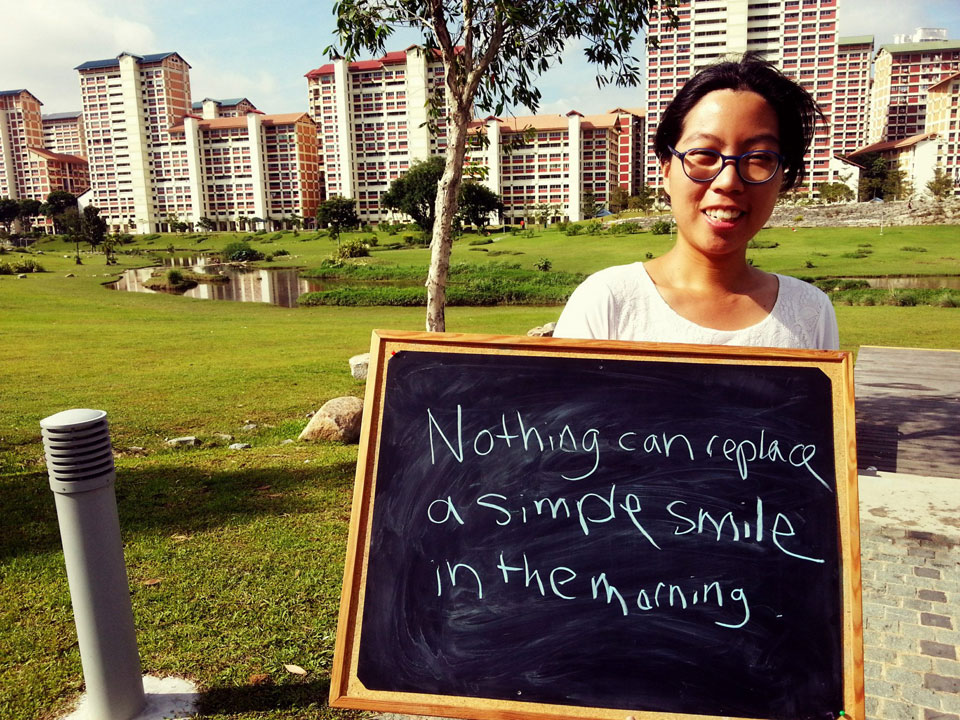 Nothing can replace
a simple smile
in the morning.